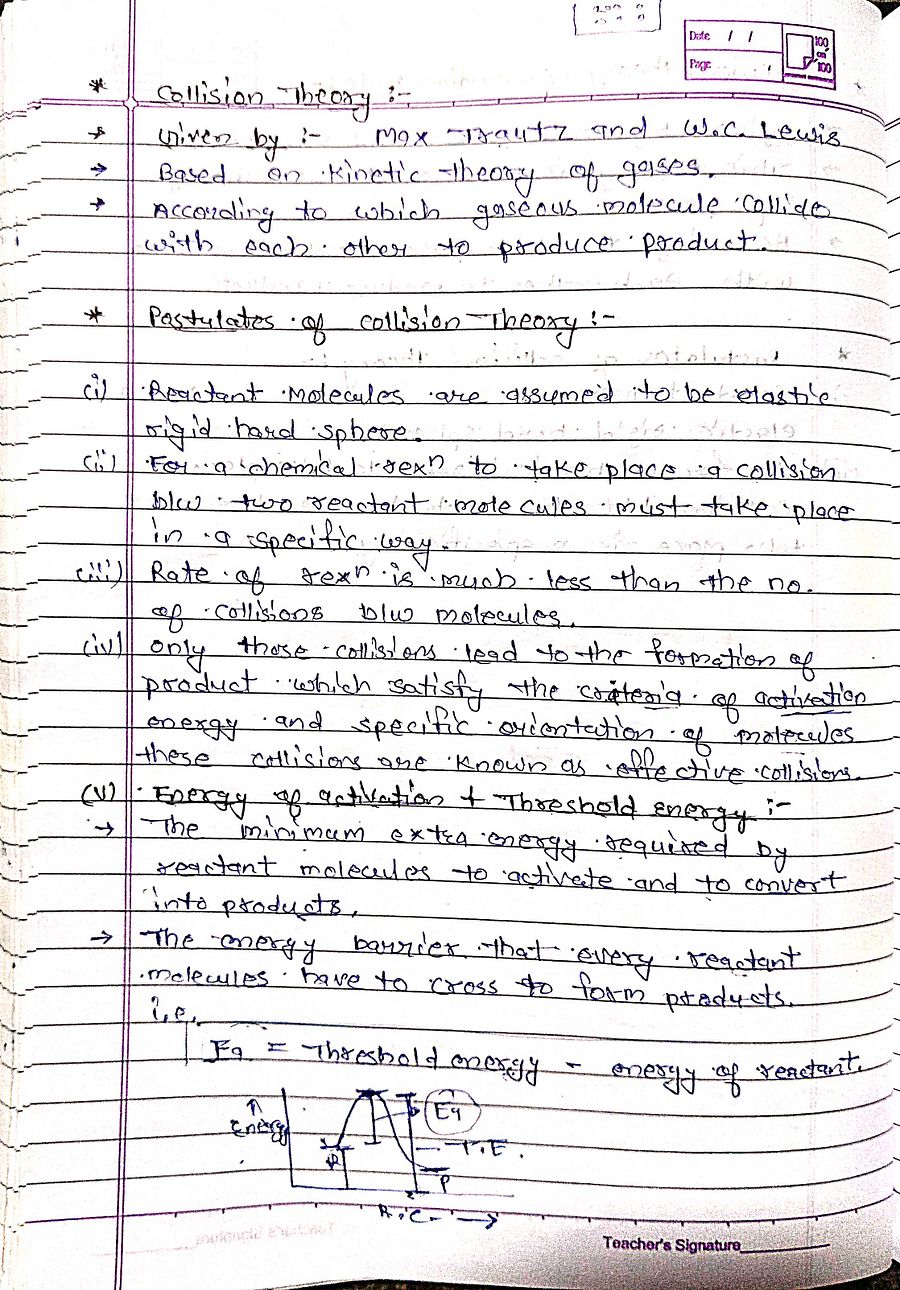 Date / /
Page
100 on 100
* Collision Theory :-
→ Given by :- Max Trautz and W.C. Lewis
→ Based on kinetic theory of gases.
→ According to which gaseous molecule collide
with each other to produce product.
* Postulates of collision Theory :-
(i) Reactant Molecules are assumed to be elastic
rigid hard sphere.
(ii) For a chemical rexⁿ to take place a collision
b/w two reactant molecules must take place
in a specific way.
(iii) Rate of rexⁿ is much less than the no.
of collisions b/w molecules.
(iv) only those collisions lead to the formation of
product which satisfy the criteria of activation
energy and specific orientation of molecules
these collisions are known as effective collisions.
(v) Energy of activation + Threshold energy :-
→ The minimum extra energy required by
reactant molecules to activate and to convert
into products.
→ The energy barrier that every reactant
molecules have to cross to form products.
i.e.
Ea = Threshold energy - energy of reactant.
↑ Energy
Ea
R
T.E.
P
R.C. →
Teacher's Signature